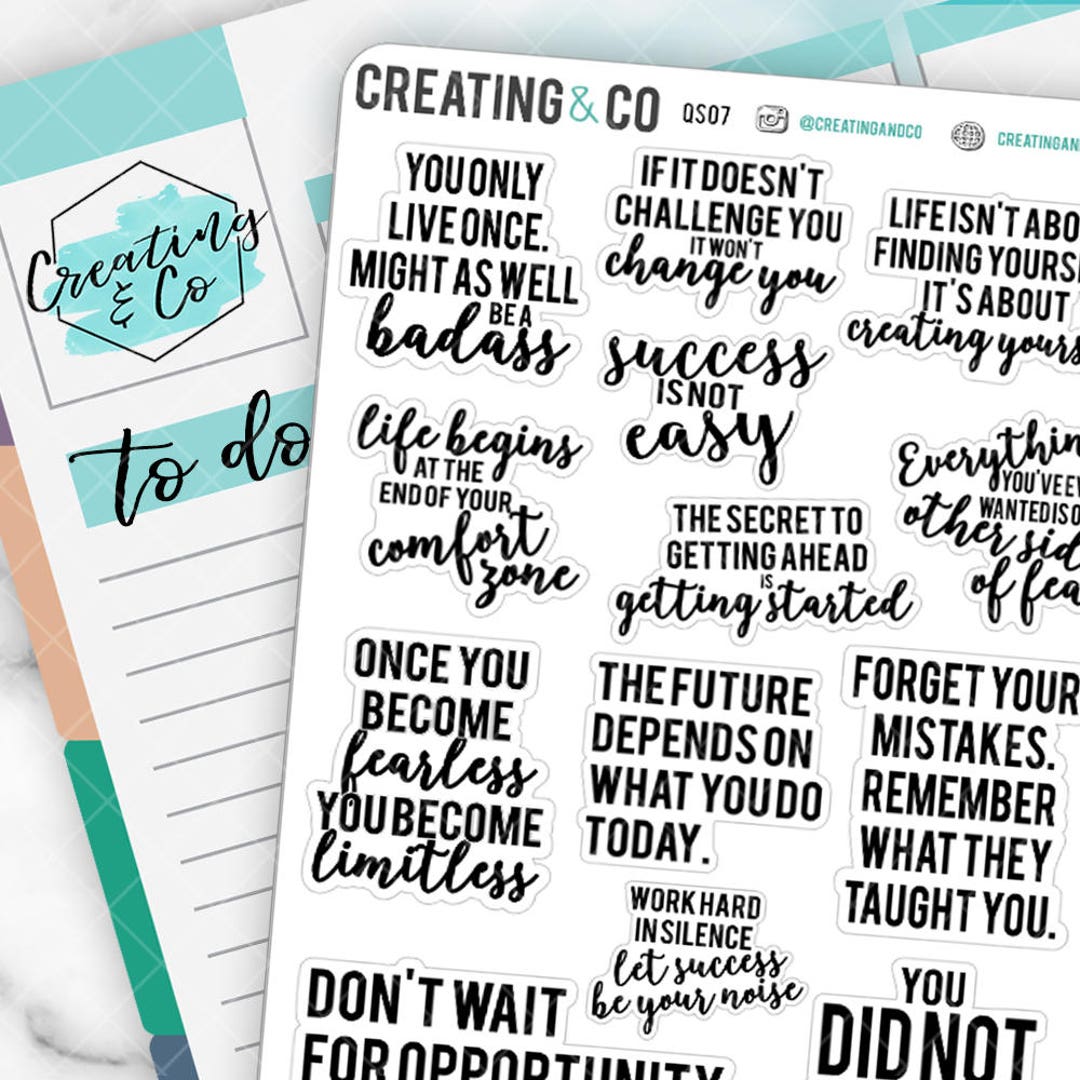 CREATING & CO QS07 @CREATINGANDCO
Creating
& Co
to do
YOU ONLY
LIVE ONCE.
MIGHT AS WELL
BE A
badass
IF IT DOESN'T
CHALLENGE YOU
IT WON'T
change you
LIFE ISN'T
FINDING
IT'S ABOUT
creating
success
IS NOT
easy
life begins
AT THE
END OF YOUR
comfort
zone
YOU'VE
WANTED
other
of
THE SECRET TO
GETTING AHEAD
IS
getting started
ONCE YOU
BECOME
fearless
YOU BECOME
limitless
THE FUTURE
DEPENDS ON
WHAT YOU DO
TODAY.
FORGET YOUR
MISTAKES.
REMEMBER
WHAT THEY
TAUGHT YOU.
WORK HARD
IN SILENCE
let success
be your noise
DON'T WAIT
FOR OPPORTUNITY
YOU
DID NOT